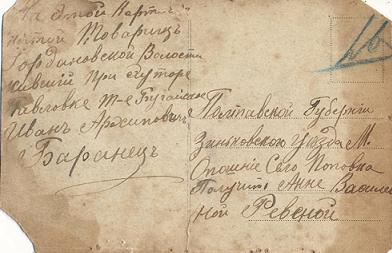 На этой карти
нятой Товарищ
Гордановской Волости
живший при хуторе
Павловке
Иванъ Архиповичъ
Баранецъ
Полтавской Губернiи
Зиньковского Уезда М.
Опошне Село Поповка
Получить Анне Василе
ной Ревеной